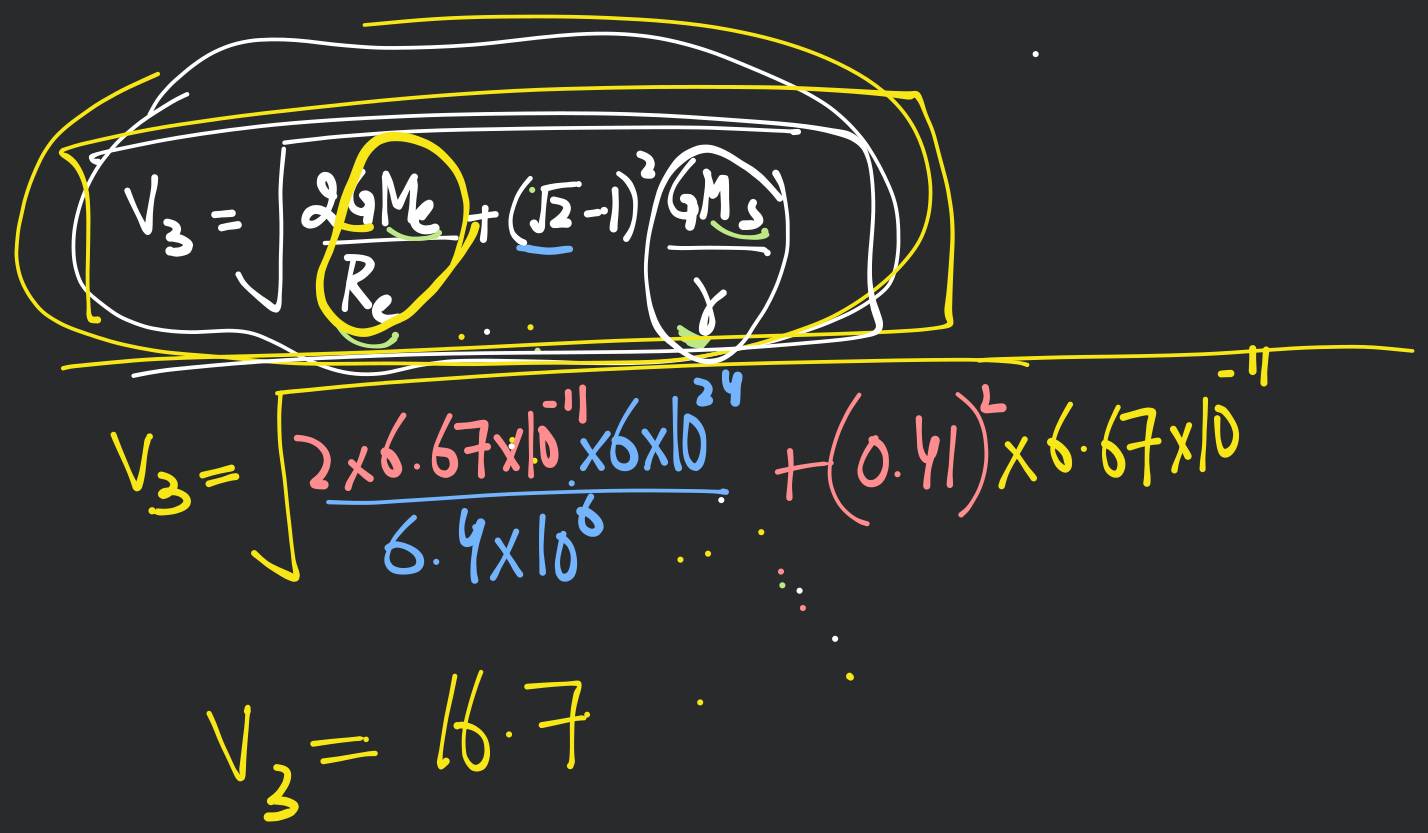 V₃ = √(2GMe/Re + (√2-1)² GMs/r)
V₃ = √(2×6.67×10⁻¹¹×6×10²⁴/6.4×10⁶ + (0.41)²×6.67×10⁻¹¹
V₃ = 16.7